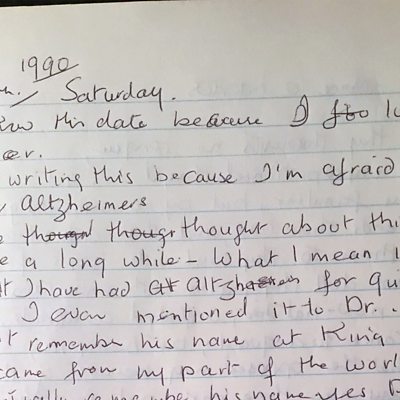 1990
Saturday.
this date because I
writing this because I'm afraid
altzheimers
though thoug thought about thi
a long while - What I mean i
I have had alt altzheimers for qui
I even mentioned it to Dr.
remember his name at King
came from my part of the worl
his name yes D